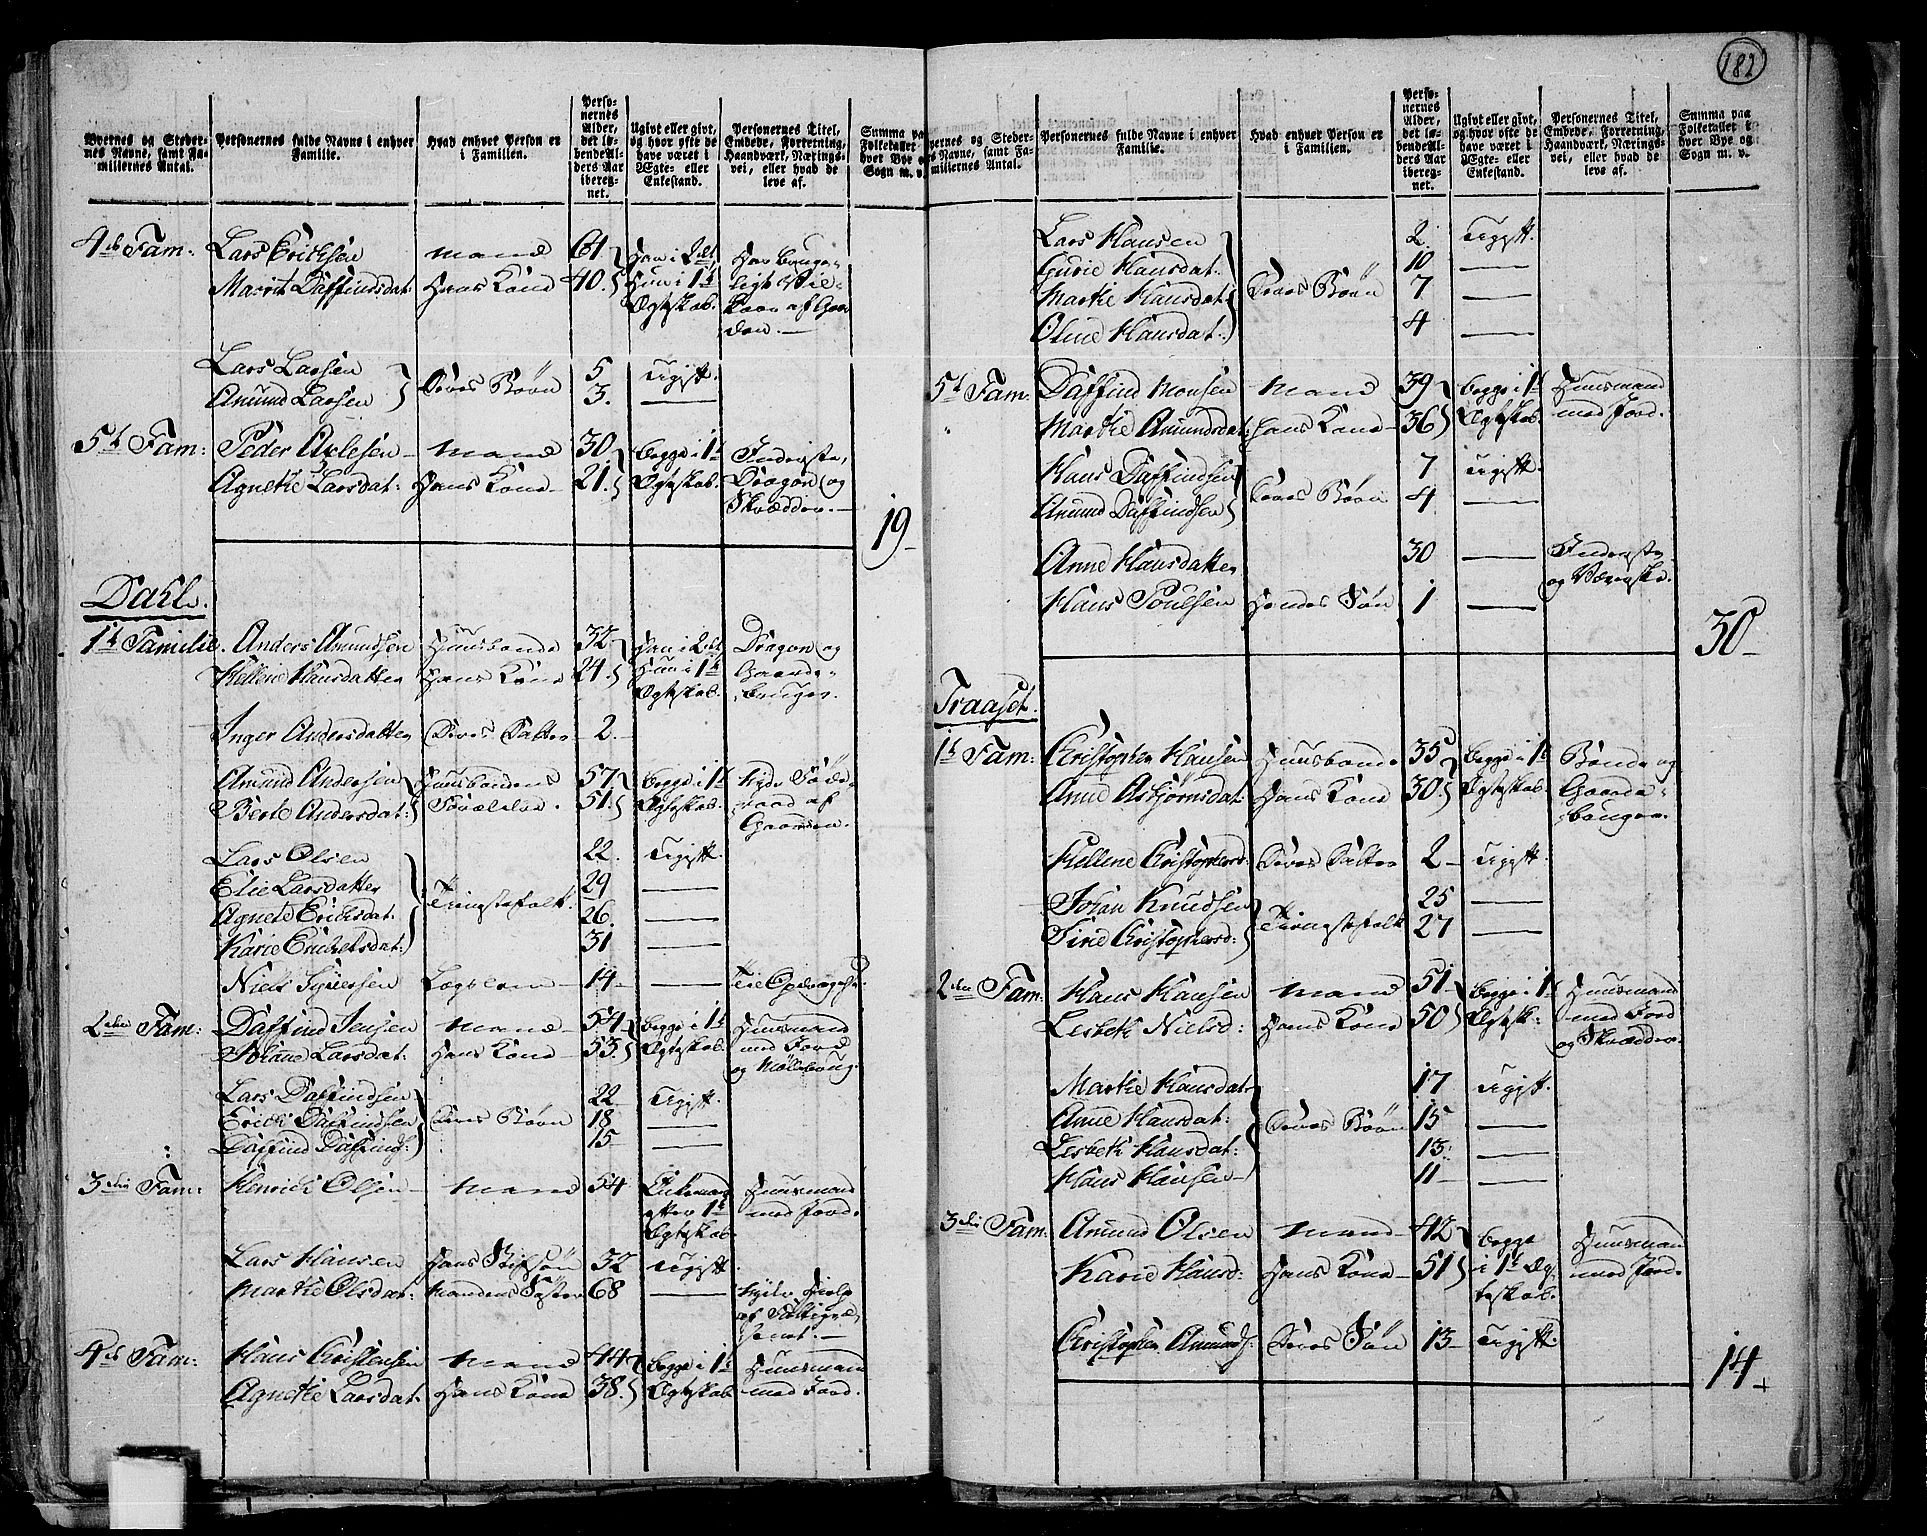 182
Byernes og Steder-
nes Navne, samt Fa-
miliernes Antal.
Personernes fulde Navne i enhver
Familie.
Hvad enhver Person er
i Familien.
Perso-
nernes
Alder,
det lø-
bende Al-
ders Aar
ibereg-
net.
Ugivt eller givt,
og hvor ofte de
have været i
Ægte- eller
Enkestand.
Personernes Titel,
Embede, Forretning,
Haandværk, Nærings-
vei, eller hvad de
leve af.
Summa paa
Folketallet i
hver Bye og
Sogn m. v.
4de Fam: Lars Erichsen mand 61 Han i 2det Har bruge-
Marit Daffindsdat: Hans Kone 40. Hun i 1te ligt Vil-
Ægteskab. kaar af Gaar
den.
Lars Larsen 5 Ugift.
Amund Larsen Deres Børn 3. —
5te Fam: Peder Axlesen mand 30. begge i 1te Inderste,
Agnethe Larsdat: Hans Kone 21. Ægteskab. Dragon og
Skrædder.
19
Dahl.
1te Familie. Anders Amundsen Huusbonde 32 Han i 2det Dragon og
Hellene Hansdatter Hans Kone 24. Hun i 1te Gaard-
Ægteskab. bruger.
Inger Andersdatter Deres Datter 2.
Amund Andersen Huusbondens 57 begge i 1te nyde Føde-
Berte Andersdat: Forældre. 51. Ægteskab. raad af
Gaarden.
Lars Olsen 22. Ugift.
Elie Larsdatter 29 —
Agnete Erichsdat: Tienestefolk. 26. —
Karie Erichsdat: 31 —
Niels Syversen Læglem 14 — Til Opdragelse.
2den Fam: Daffind Jensen mand 54 begge i 1te Huusmand
Johanne Larsdat: Hans Kone 53. Ægteskab. med Jord
og Møllebrug.
Lars Daffindsen 22 Ugift.
Erich Daffindsen Deres Børn 18 —
Daffind Daffinds: 15 —
3die Fam: Henrich Olsen mand 54 Enkemand Huusmand
efter 1te med Jord.
Ægteskab.
Lars Hansen Hans Stifsøn 32 Ugift
Marthe Olsdat: Mandens Søster 68 — Nyder Hielp
af Fattigvæ-
senet.
4de Fam: Hans Christensen mand 44 begge i 1te Huusmand
Agnethe Larsdat: Hans Kone 38. Ægteskab. med Jord.
nernes og Steder-
es Navne, samt Fa-
miliernes Antal.
Personernes fulde Navne i enhver
Familie.
Hvad enhver Person er
i Familien.
Perso-
nernes
Alder,
det lø-
bende Al-
ders Aar
ibereg-
net.
Ugivt eller givt,
og hvor ofte de
have været i
Ægte- eller
Enkestand.
Personernes Titel,
Embede, Forretning,
Haandværk, Nærings-
vei, eller hvad de
leve af.
Summa paa
Folketallet i
hver Bye og
Sogn m. v.
Lars Hansen 2. Ugift.
Gurie Hansdat: 10 —
Marthe Hansdat: Deres Børn 7 —
Oline Hansdat: 4 —
5te Fam: Daffind Monsen mand 39 begge i 1te Huusmand
Marthe Amundsdat: Hans Kone 36 Ægteskab. med Jord.
Hans Daffindsen 7 Ugift.
Amund Daffindsen Deres Børn 4 —
Anne Hansdatter 30 — Inderste
og Væverske.
Hans Poulsen Hendes Søn 1 —
30
Traaset.
1te Fam: Christopher Hansen Huusbonde 35 begge i 1te Bonde og
Anne Asbjørnsdat: Hans Kone 30. Ægteskab. Gaard-
bruger.
Hellene Christophersd: Deres Datter 2 Ugift.
Johan Knudsen 25 —
Sirie Christophersd: Tienestefolk 27 —
2den Fam: Hans Hansen mand 51 begge i 1te Huusmand
Lisbeth Nielsd: Hans Kone 50 Ægtesk: med Jord
og Skrædder.
Marthe Hansdat: 17 Ugift.
Anne Hansdat: Deres Børn 15 —
Lisbeth Hansdat: 13. —
Hans Hansen 11 —
3die Fam: Amund Olsen mand 42 begge Huusmand
Karie Hansd: Hans Kone 51 i 1te Æg- med Jord.
teskab.
Christopher Amunds: Deres Søn 13 Ugift.
14